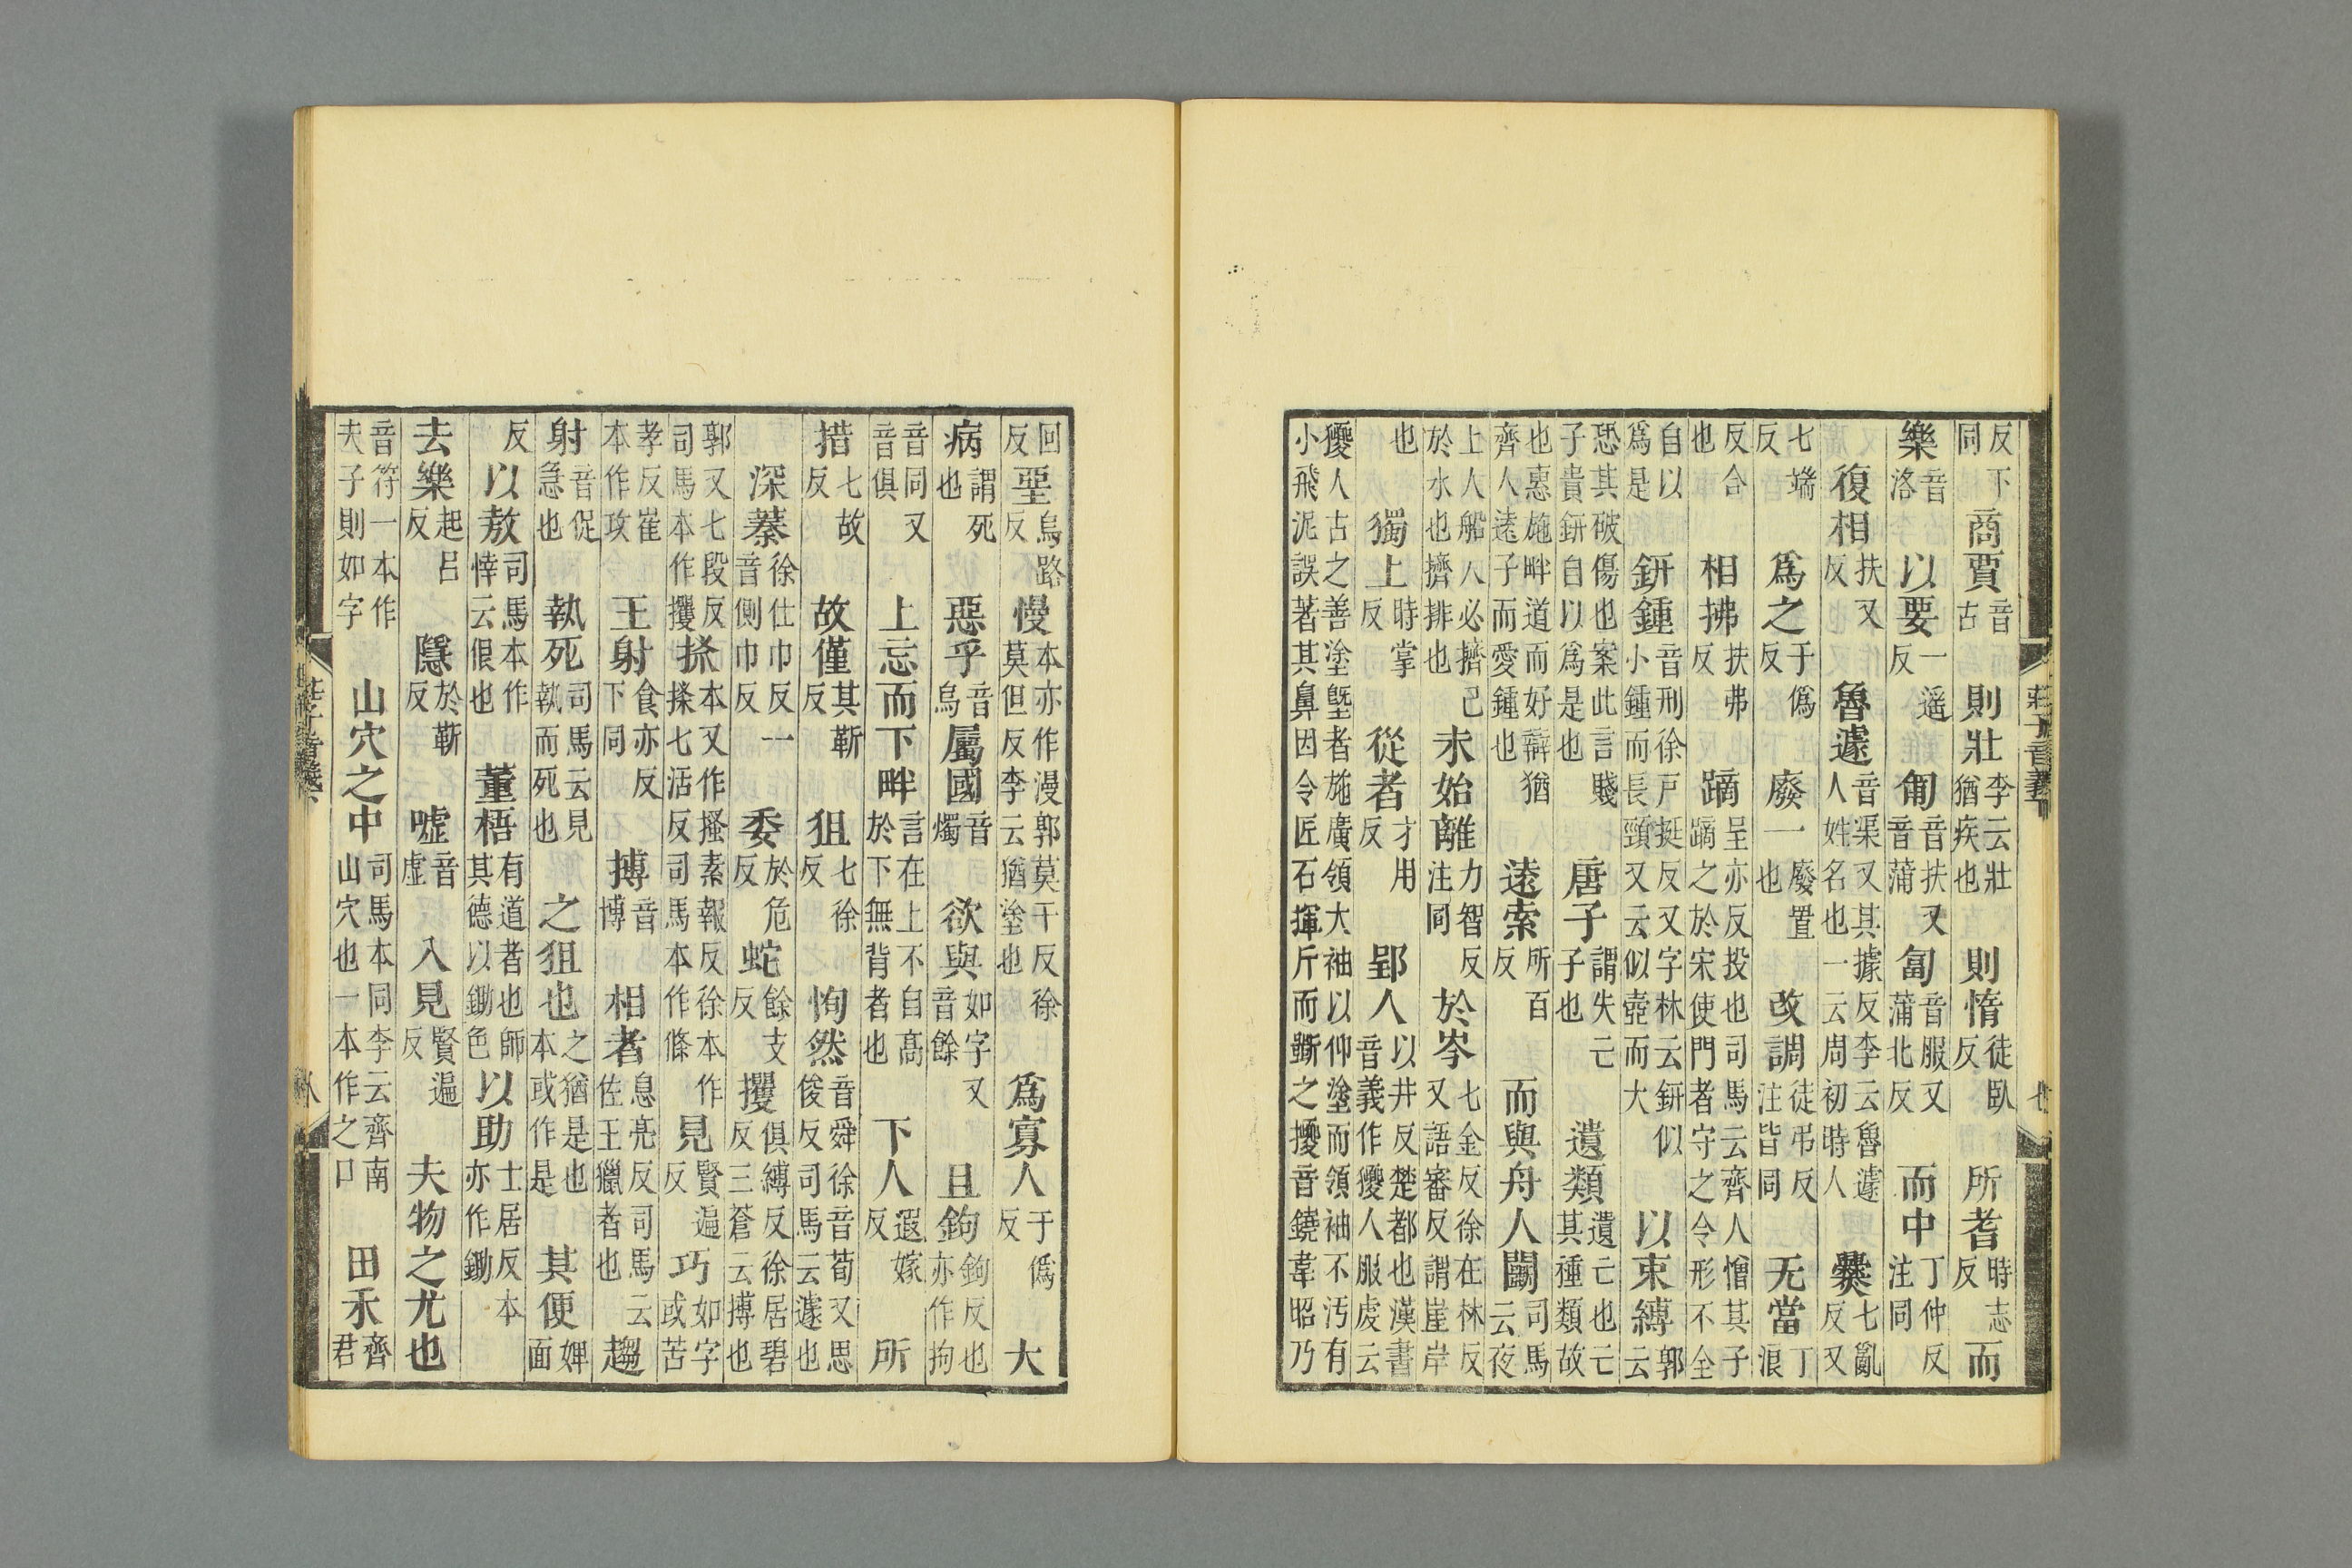 莊子音義下 七
反下同商賈音古則壯李云壯猶疾也則惰徒臥反所耆時志反而
樂音洛以要一遥反匍音扶又音蒲匐音服又蒲北反而中丁仲反注同
復相扶又反魯遽音渠又其據反李云魯遽人姓名也一云周初時人爨七亂反又
七端反爲之于僞反廢一廢置也改調徒弔反注皆同无當丁浪
反合也相拂扶弗反蹢呈亦反投也司馬云齊人憎其子蹢之於宋使門者守之令形不全
自以爲是鈃鍾音刑徐戸挺反又字林云鈃似小鍾而長頸又云似壺而大以束縛郭云
恐其破傷也案此言賤子貴鈃自以爲是也唐子謂失亡子也遺類遺亡也亡其種類故
也惠施畔道而好辯猶齊人逺子而愛鍾也逺索所百反而與舟人鬭司馬云夜
上人船人必擠己於水也擠排也未始離力智反注同於岑七金反徐在林反又語審反謂崖岸
也獨上時掌反從者才用反郢人以井反楚都也漢書音義作獿人服虔云
獿人古之善塗塈者施廣領大袖以仰塗而領袖不汚有小飛泥誤著其鼻因令匠石揮斤而斲之獿音鐃韋昭乃
回反堊烏路反慢本亦作漫郭莫干反徐莫但反李云猶塗也爲寡人于僞反大
病謂死也惡乎音烏屬國音燭欲與如字又音餘且鉤鉤反也亦作拘
音同又音俱上忘而下畔言在上不自高於下無背者也下人遐嫁反所
措七故反故僅其靳反狙七徐反恂然音舜徐音荀又思俊反司馬云遽也
深蓁徐仕巾反一音側巾反委於危反蛇餘支反攫俱縛反徐居碧反三蒼云搏也
郭又七段反司馬本作攫搽本又作搔素報反徐本作搽七活反司馬本作條見賢遍反巧如字或苦
孝反崔本作攻王射食亦反下同搏音博相者息亮反司馬云佐王獵者也趨
射音促急也執死司馬云見執而死也之狙也之猶是也本或作是其便婢面
反以敖司馬本作悻云佷也董梧有道者也師其德以鋤色以助士居反本亦作鋤
去樂起呂反隱於靳反嘘音虛入見賢遍反夫物之尤也
音符一本作夫子則如字山穴之中司馬本同李云齊南山穴也一本作之口田禾齊君
八